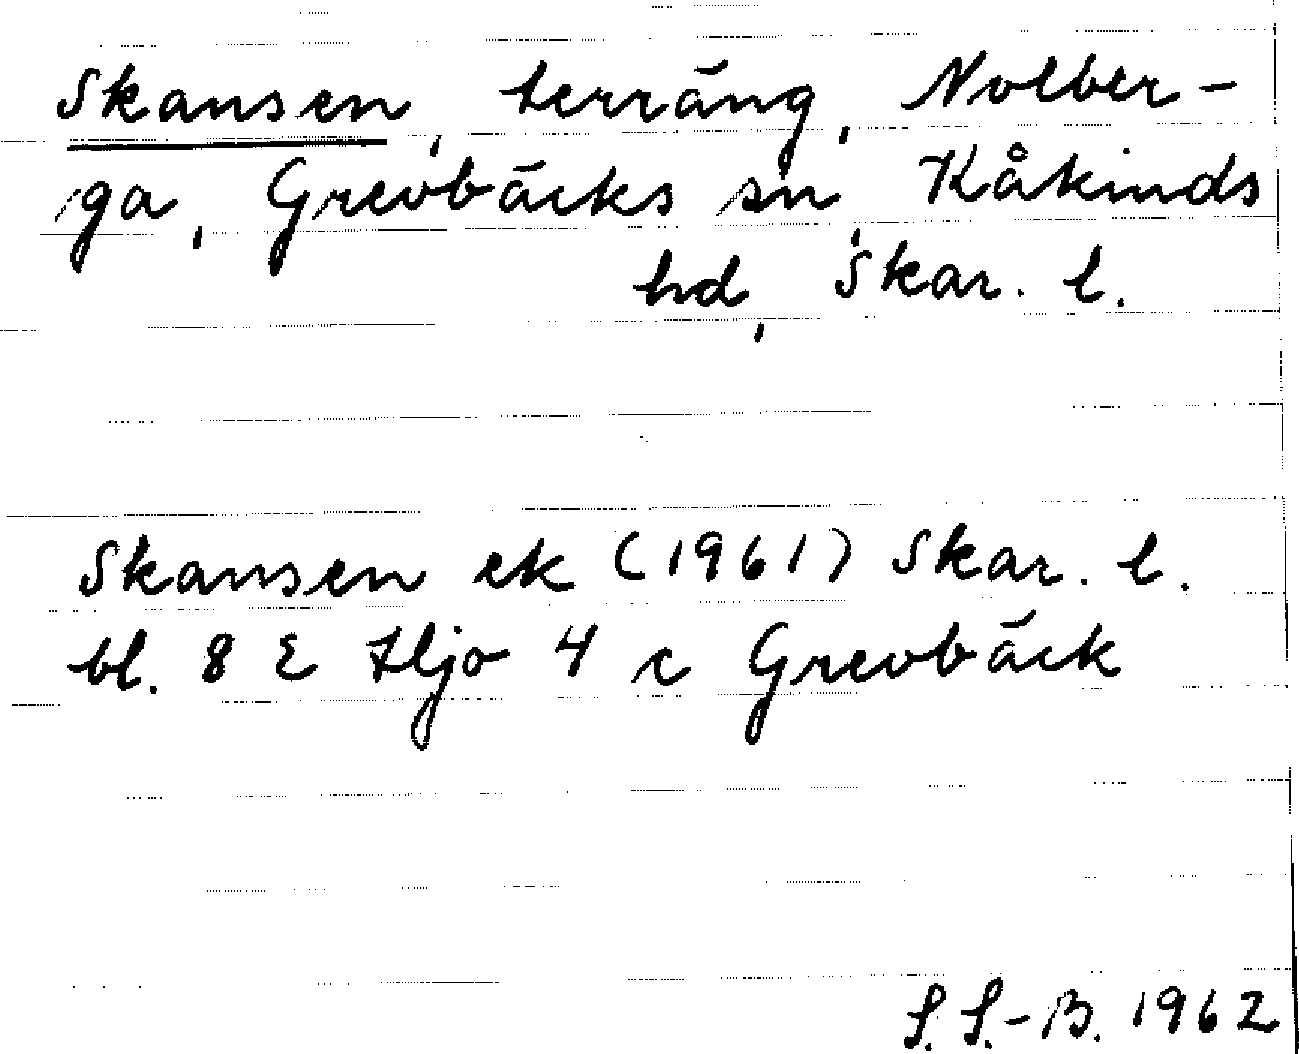 Skansen, terräng, Nolber-
ga, Grevbäcks sn, Kåkinds
hd, Skar. l.
Skansen ek (1961) Skar. l.
bl. 8 E Hjo 4 c Grevbäck
S. S.-B. 1962